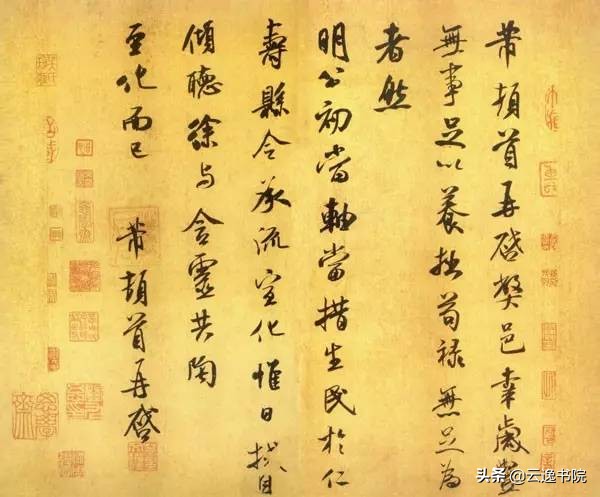 芾頓首再啓弊邑幸歲豐
無事足以養拙苟禄無足爲
者然
明公初當軸當措生民於仁
壽縣令承流宣化惟日拭目
傾聽徐與含靈共陶
至化而已
芾頓首再啓
头条 @云逸书院